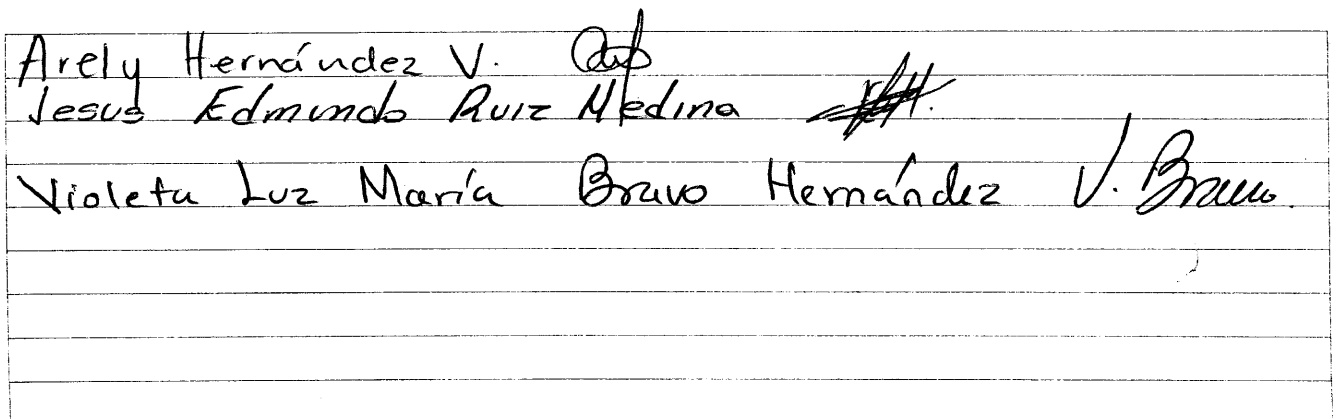 Arely Hernández V.
Jesus Edmundo Ruiz Medina
Violeta Luz María Bravo Hernández V. Bravo.